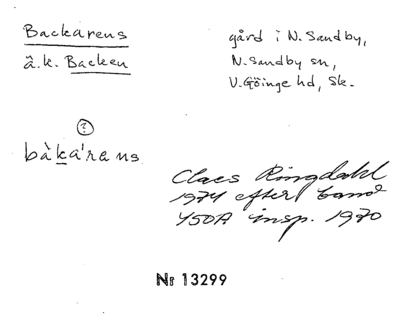 Backarens
å.k. Backen
gård i N. Sandby,
N. Sandby sn,
V. Göinge hd, Sk.
?
bàka'rans
Claes Ringdahl
1974 efter band
450A insp. 1970
Nr 13299